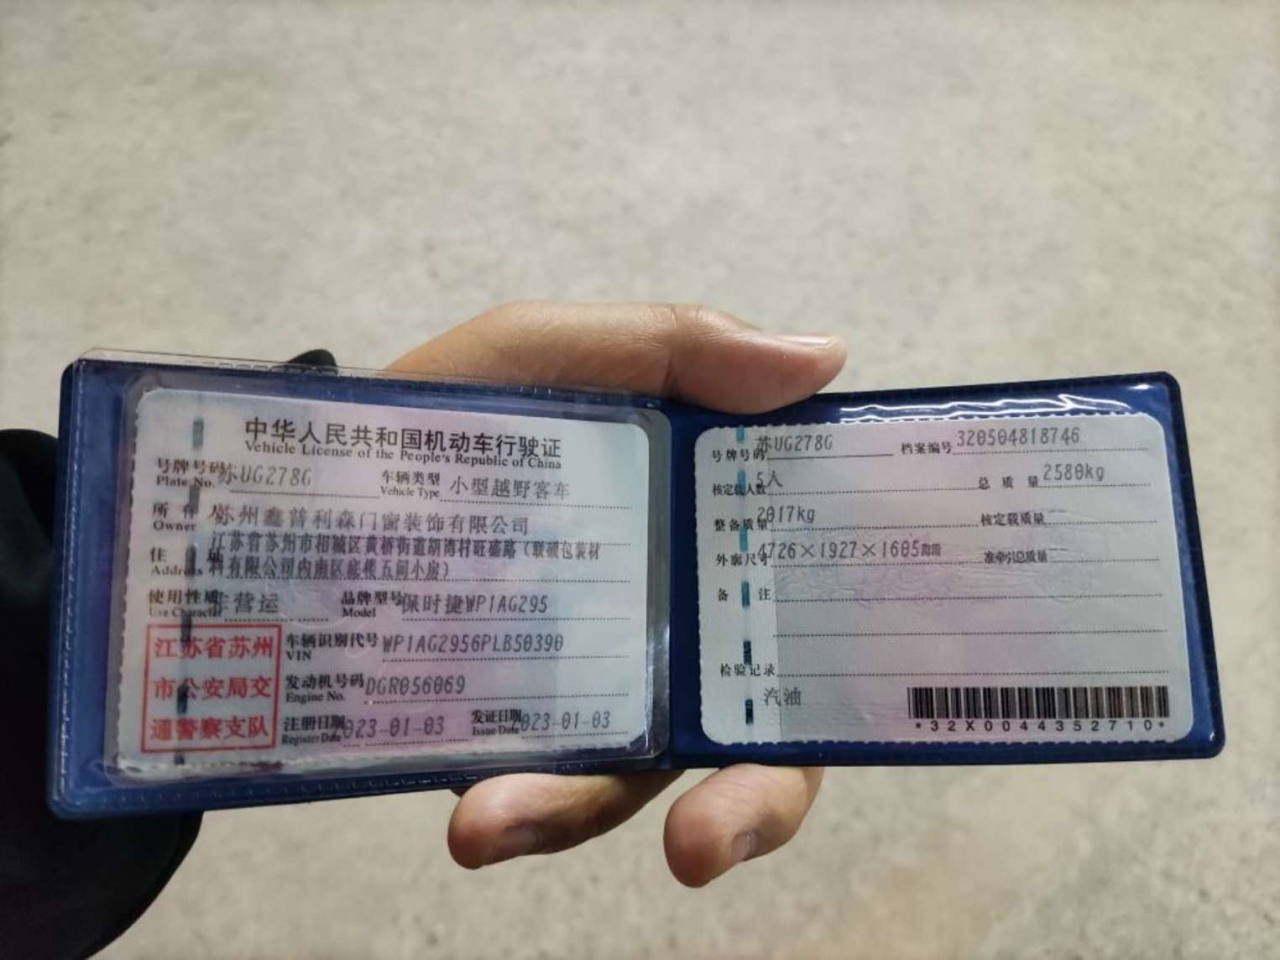 中华人民共和国机动车行驶证
Vehicle License of the People's Republic of China
号牌号码 苏UG278G 车辆类型 小型越野客车
Plate No. Vehicle Type
所有人 苏州鑫普利森门窗装饰有限公司
Owner
住址 江苏省苏州市相城区黄桥街道胡湾村旺盛路（联硕包装材
Address 料有限公司内南区底楼五间小房）
使用性质 营运 品牌型号 保时捷WP1AG295
Use Character Model
江苏省苏州
市公安局交
通警察支队
车辆识别代号 WP1AG2956PLB50390
VIN
发动机号码 DGR056069
Engine No.
注册日期 023-01-03 发证日期 023-01-03
Register Date Issue Date
号牌号码 苏UG278G 档案编号 320504818746
核定载人数 5人 总质量 2580kg
整备质量 2017kg 核定载质量
外廓尺寸 4726×1927×1685mm 准牵引总质量
备注
检验记录
汽油
*32X0044352710*